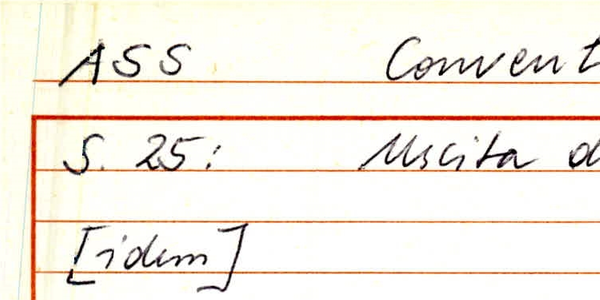 ASS Convent
S. 25: Uscita d
[idem]